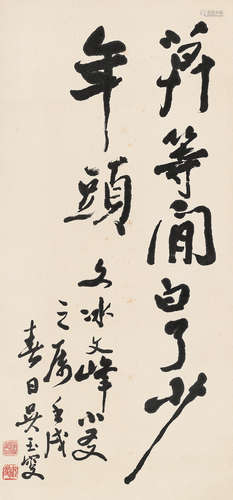 莫等閒白了少
年頭
冰文峰小友
之属壬戌
春日吴玉